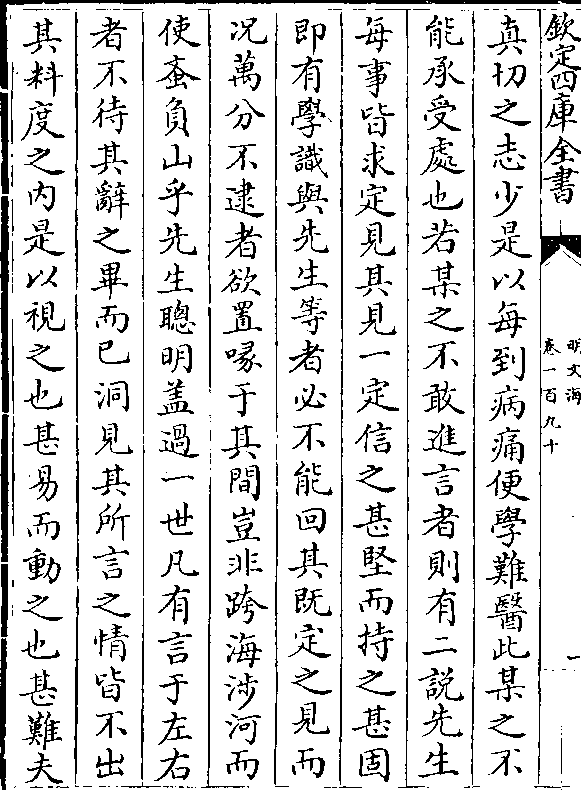 欽定四庫全書
明文海
卷一百九十
一
真切之志少是以每到病痛便學難醫此某之不
能承受處也若某之不敢進言者則有二說先生
每事皆求定見其見一定信之甚堅而持之甚固
即有學識與先生等者必不能回其既定之見而
况萬分不逮者欲置喙于其間豈非跨海涉河而
使蚉負山乎先生聰明盖過一世凡有言于左右
者不待其辭之畢而已洞見其所言之情皆不出
其料度之内是以視之也甚易而動之也甚難夫